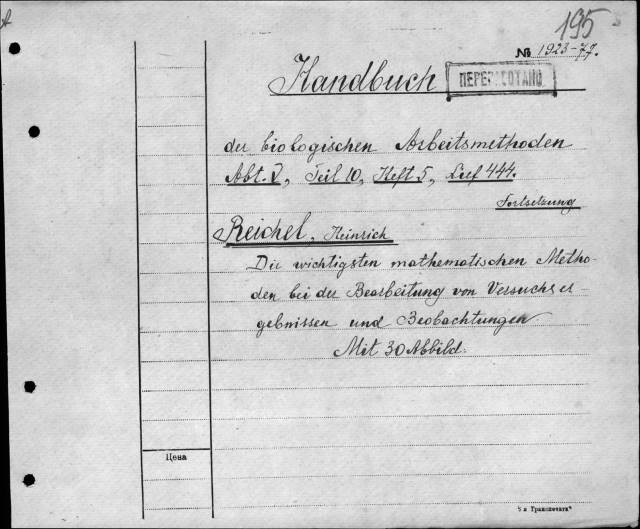 195
№ 1923-77.
Handbuch
ПЕРЕРАБОТАНО
der biologischen Arbeitsmethoden
Abt. V, Teil 10, Heft 5, Lief 444.
Fortsetzung
Reichel, Heinrich
Die wichtigsten mathematischen Metho-
den bei der Bearbeitung von Versuchser-
gebnissen und Beobachtungen.
Mit 30 Abbild.
Цена